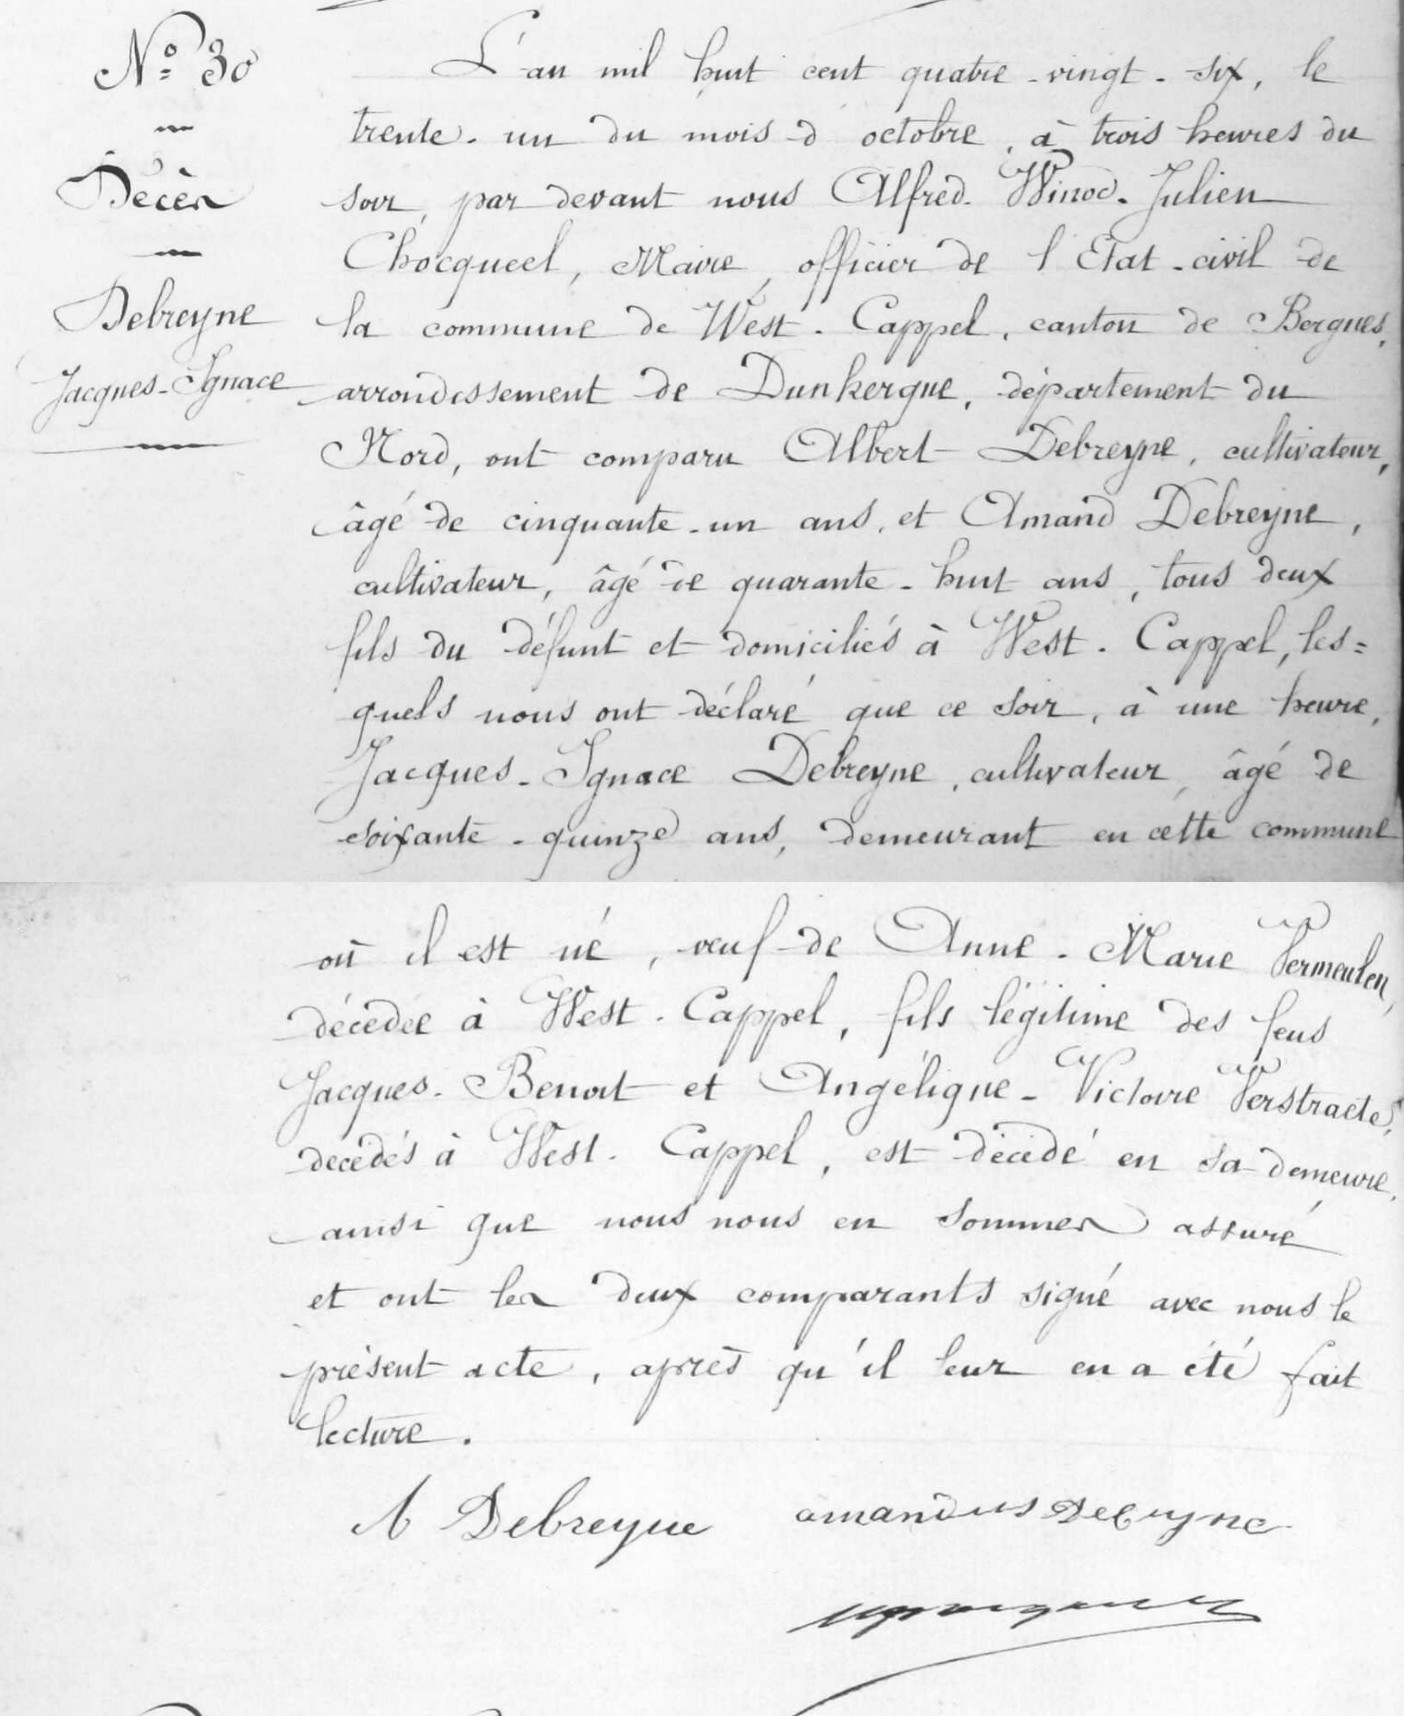 Nº 30
Décès
Debreyne
Jacques-Ignace
L'an mil huit cent quatre-vingt-six, le
trente-un du mois d'octobre, à trois heures du
soir, par devant nous Alfred-Winoc-Julien
Chocqueel, Maire, officier de l'Etat-civil de
la commune de West-Cappel, canton de Bergues,
arrondissement de Dunkerque, département du
Nord, ont comparu Albert Debreyne, cultivateur,
âgé de cinquante-un ans, et Amand Debreyne,
cultivateur, âgé de quarante-huit ans, tous deux
fils du défunt et domiciliés à West-Cappel, les=
quels nous ont déclaré que ce soir, à une heure,
Jacques-Ignace Debreyne, cultivateur, âgé de
soixante-quinze ans, demeurant en cette commune
où il est né, veuf de Anne-Marie Vermeulen,
décédée à West-Cappel, fils légitime des feus
Jacques-Benoit et Angélique-Victoire Verstraete,
décédés à West-Cappel, est décédé en sa demeure,
ainsi que nous nous en sommes assuré
et ont les deux comparants signé avec nous le
présent acte, après qu'il leur en a été fait
lecture.
A Debreyne amandus Debreyne